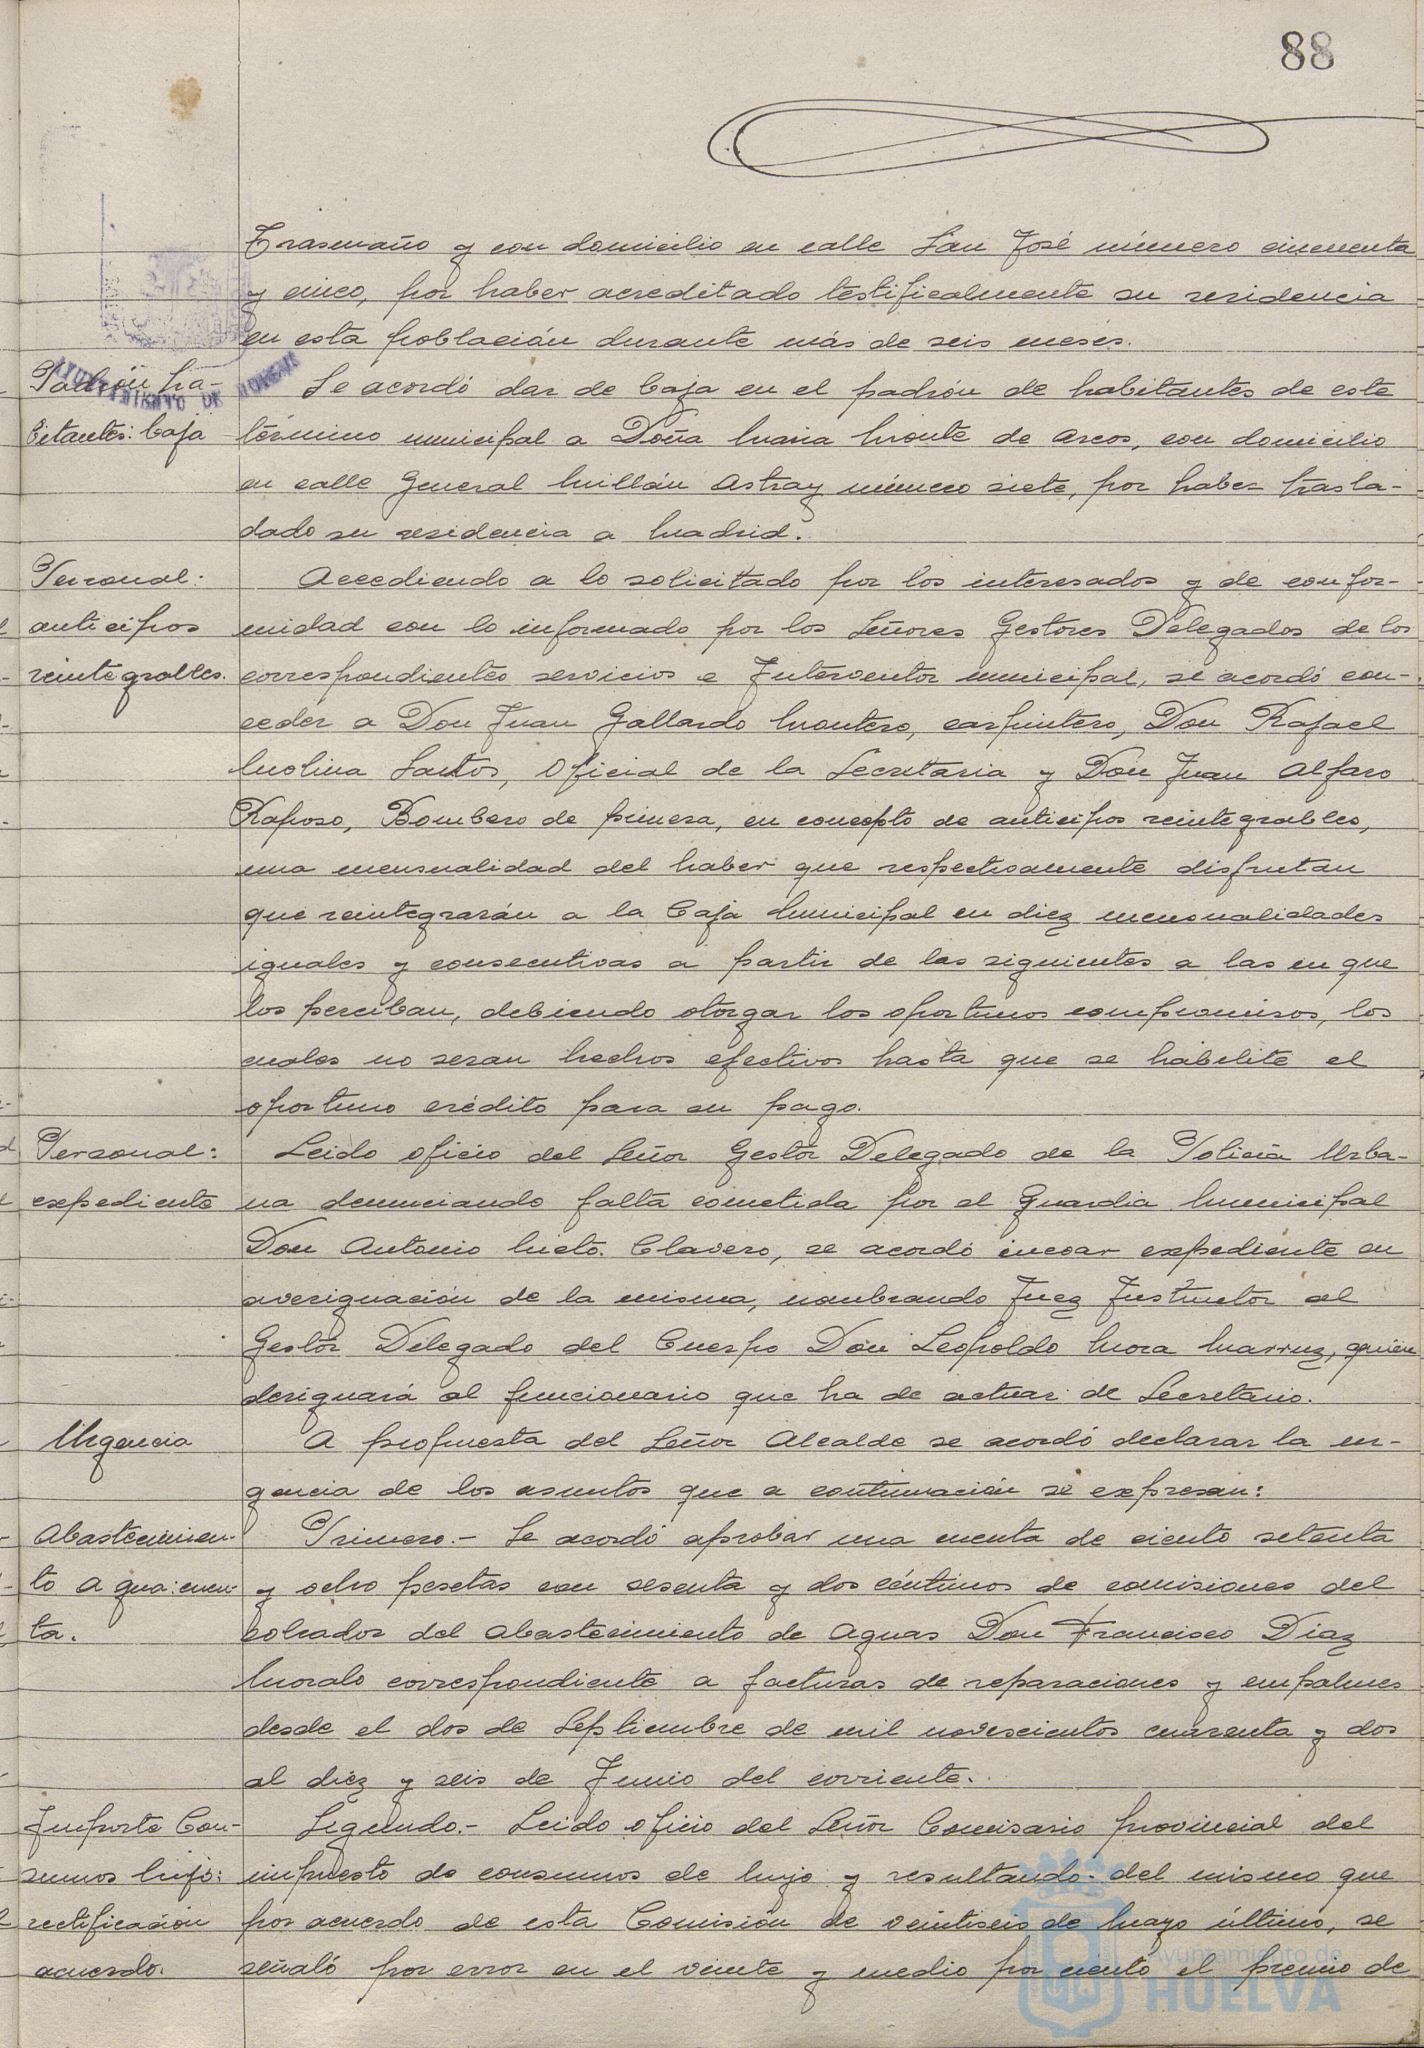 88
Trasmaño y con domicilio en calle San José número cincuenta
y cinco, por haber acreditado testificalmente su residencia
en esta población durante más de seis meses.
Padrón ha-
bitantes: baja
Se acordó dar de baja en el padrón de habitantes de este
término municipal a Doña Maria Monte de Arcos, con domicilio
en calle General Millán Astray número siete, por haber trasla-
dado su residencia a Madrid.
Personal:
anticipos
reintegrables.
Accediendo a lo solicitado por los interesados y de confor-
midad con lo informado por los Señores Gestores Delegados de los
correspondientes servicios e Interventor municipal, se acordó con-
ceder a Don Juan Gallardo Montero, carpintero, Don Rafael
Molina Santos, Oficial de la Secretaria y Don Juan Alfaro
Raposo, Bombero de primera, en concepto de anticipos reintegrables,
una mensualidad del haber que respectivamente disfrutan
que reintegrarán a la Caja Municipal en diez mensualidades
iguales y consecutivas a partir de las siguientes a las en que
los perciban, debiendo otorgar los oportunos compromisos, los
cuales no seran hechos efectivos hasta que se habilite el
oportuno crédito para su pago.
Personal:
expediente
Leido oficio del Señor Gestor Delegado de la Policia Urba-
na denunciando falta cometida por el Guardia Municipal
Don Antonio Nieto Clavero, se acordó incoar expediente en
averiguación de la misma, nombrando Juez Instructor al
Gestor Delegado del Cuerpo Don Leopoldo Mora, quien
designará al funcionario que ha de actuar de Secretario.
Urgencia
A propuesta del Señor Alcalde se acordó declarar la ur-
gencia de los asuntos que a continuación se expresan:
Abastecimien-
to Agua: cuen-
ta.
Primero.- Se acordó aprobar una cuenta de ciento setenta
y ocho pesetas con sesenta y dos céntimos de comisiones del
cobrador del Abastecimiento de Aguas Don Francisco Diaz
Moralo correspondiente a facturas de reparaciones y empalmes
desde el dos de Septiembre de mil novescientos cuarenta y dos
al diez y seis de Junio del corriente.
Importe Con-
sumos lujo:
rectificación
acuerdo.
Segundo.- Leido oficio del Señor Comisario provincial del
impuesto de consumos de lujo y resultando del mismo que
por acuerdo de esta Comisión de veintiseis de Mayo último, se
señaló por error en el veinte y medio por ciento el premio de
AYUNTAMIENTO DE HUELVA
Ayuntamiento de
HUELVA